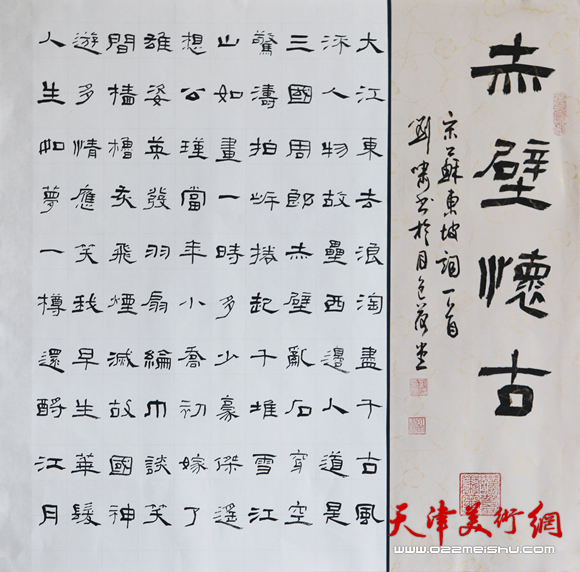 赤壁懷古
宋蘇東坡詞一首
劉嘯書於月
大江東去浪淘盡千古風
流人物故壘西邊人道是
三國周郎赤壁亂石穿空
驚濤拍岸捲起千堆雪江
山如畫一時多少豪傑遙
想公瑾當年小喬初嫁了
雄姿英發羽扇綸巾談笑
間檣櫓灰飛煙滅故國神
遊多情應笑我早生華髮
人生如夢一樽還酹江月
天津美術網
www.022meishu.com